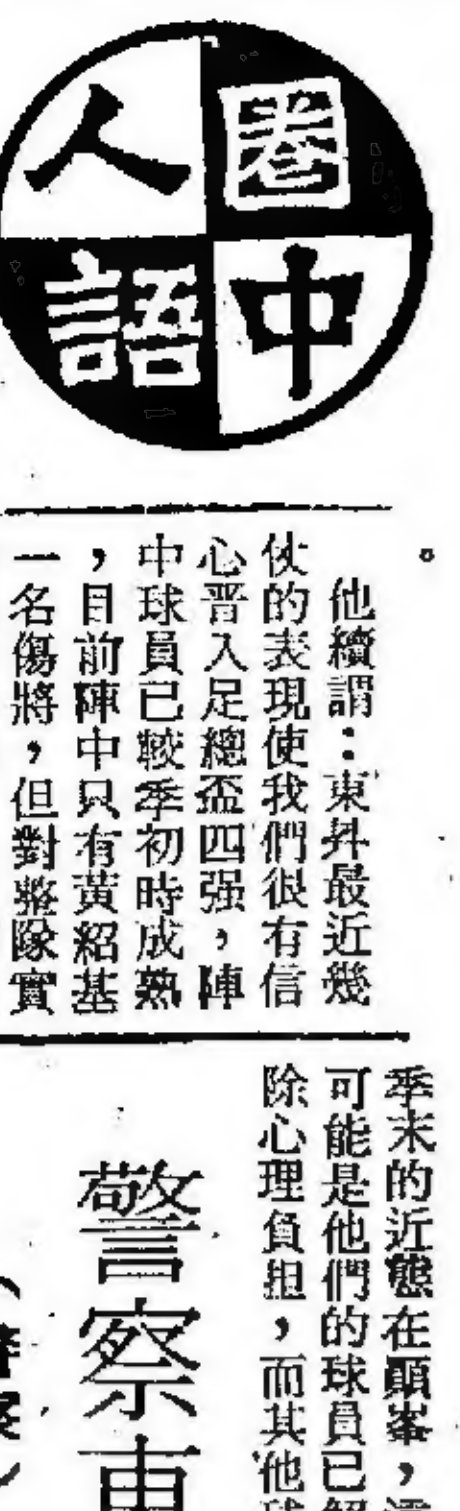 圈中
人語
。
他續謂：東昇最近幾
仗的表現使我們很有信
心晋入足總盃四强，陣
中球員已較季初時成熟
，目前陣中只有黃紹基
一名傷將，但對整隊實
季末的近態在顚峯，
可能是他們的球員已
除心理負担，而其他
警察
警察